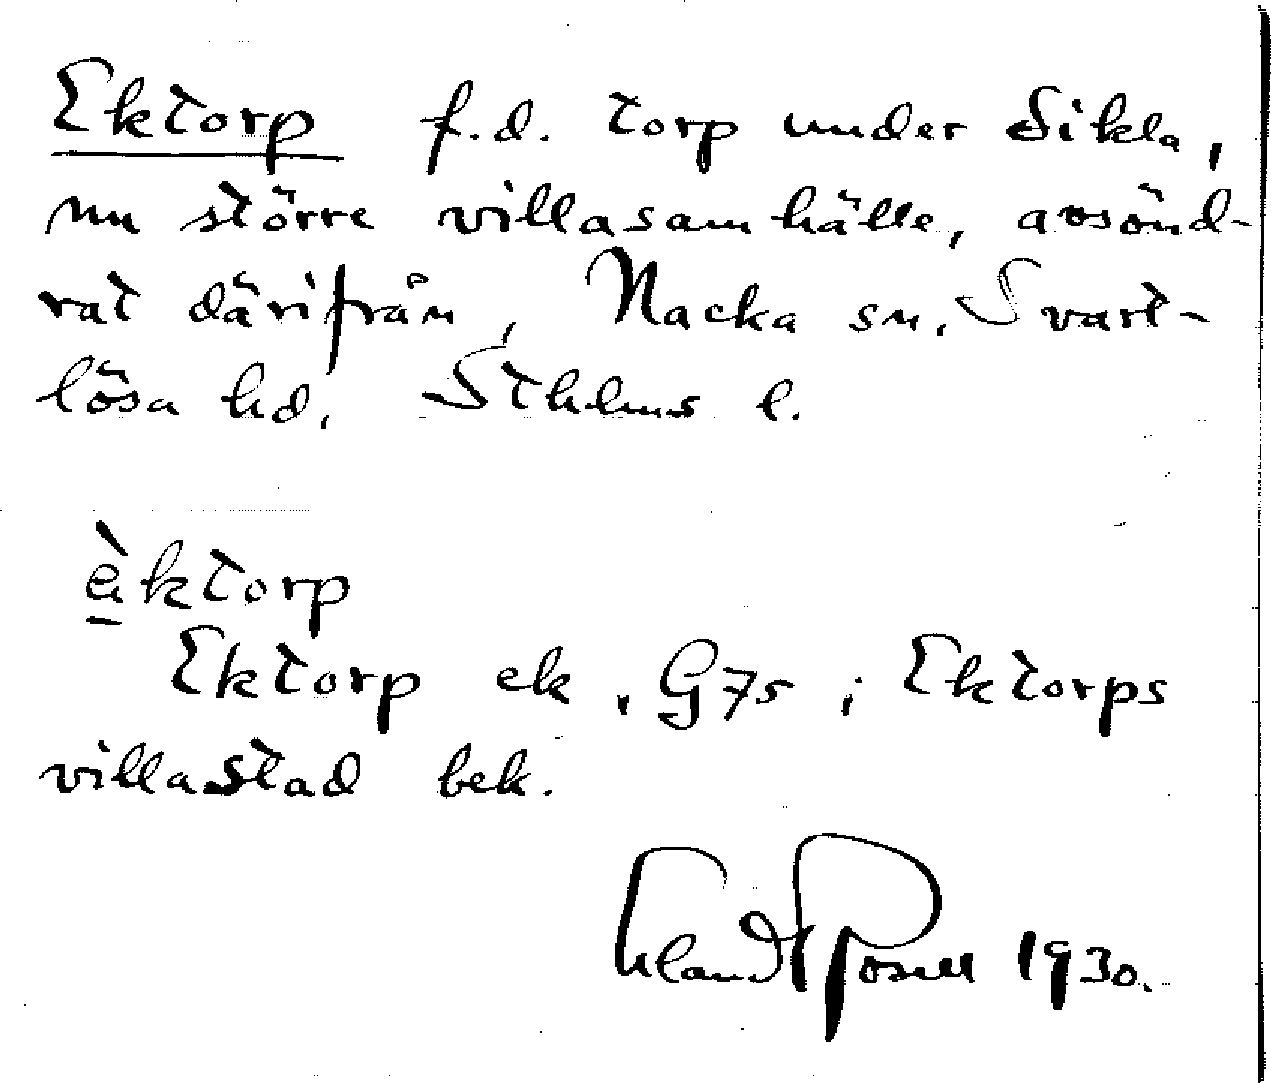 Ektorp f.d. torp under Sikla,
nu större villasamhälle, avsönd-
rat därifrån, Nacka sn, Svart-
lösa hd, Sthlms l.
èktorp
Ektorp ek, G75; Ektorps
villastad bek.
1930.